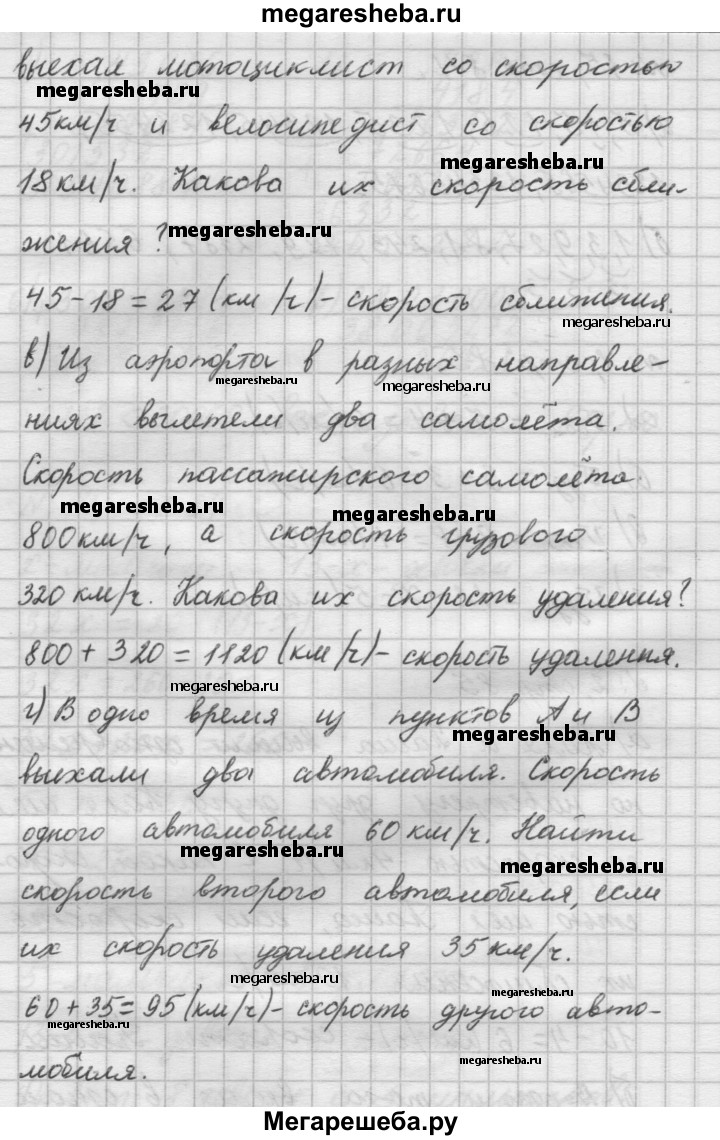 megaresheba.ru
выехал мотоциклист со скоростью
megaresheba.ru
45км/ч и велосипедист со скоростью
megaresheba.ru
18км/ч. Какова их скорость сбли-
жения? megaresheba.ru
45-18=27(км/ч)-скорость сближения.
megaresheba.ru
в) Из аэропорта в разных направле-
megaresheba.ru megaresheba.ru
ниях вылетели два самолёта.
Скорость пассажирского самолёта
megaresheba.ru megaresheba.ru
800км/ч, а скорость грузового
320 км/ч. Какова их скорость удаления?
800+320=1120(км/ч)-скорость удаления.
megaresheba.ru
г) В одно время из пунктов А и В
megaresheba.ru
выехали два автомобиля. Скорость
одного автомобиля 60км/ч. Найти
megaresheba.ru megaresheba.ru
скорость второго автомобиля, если
их скорость удаления 35км/ч.
megaresheba.ru megaresheba.ru
60+35=95(км/ч)-скорость другого авто-
megaresheba.ru
мобиля. megaresheba.ru
Мегарешеба.ру